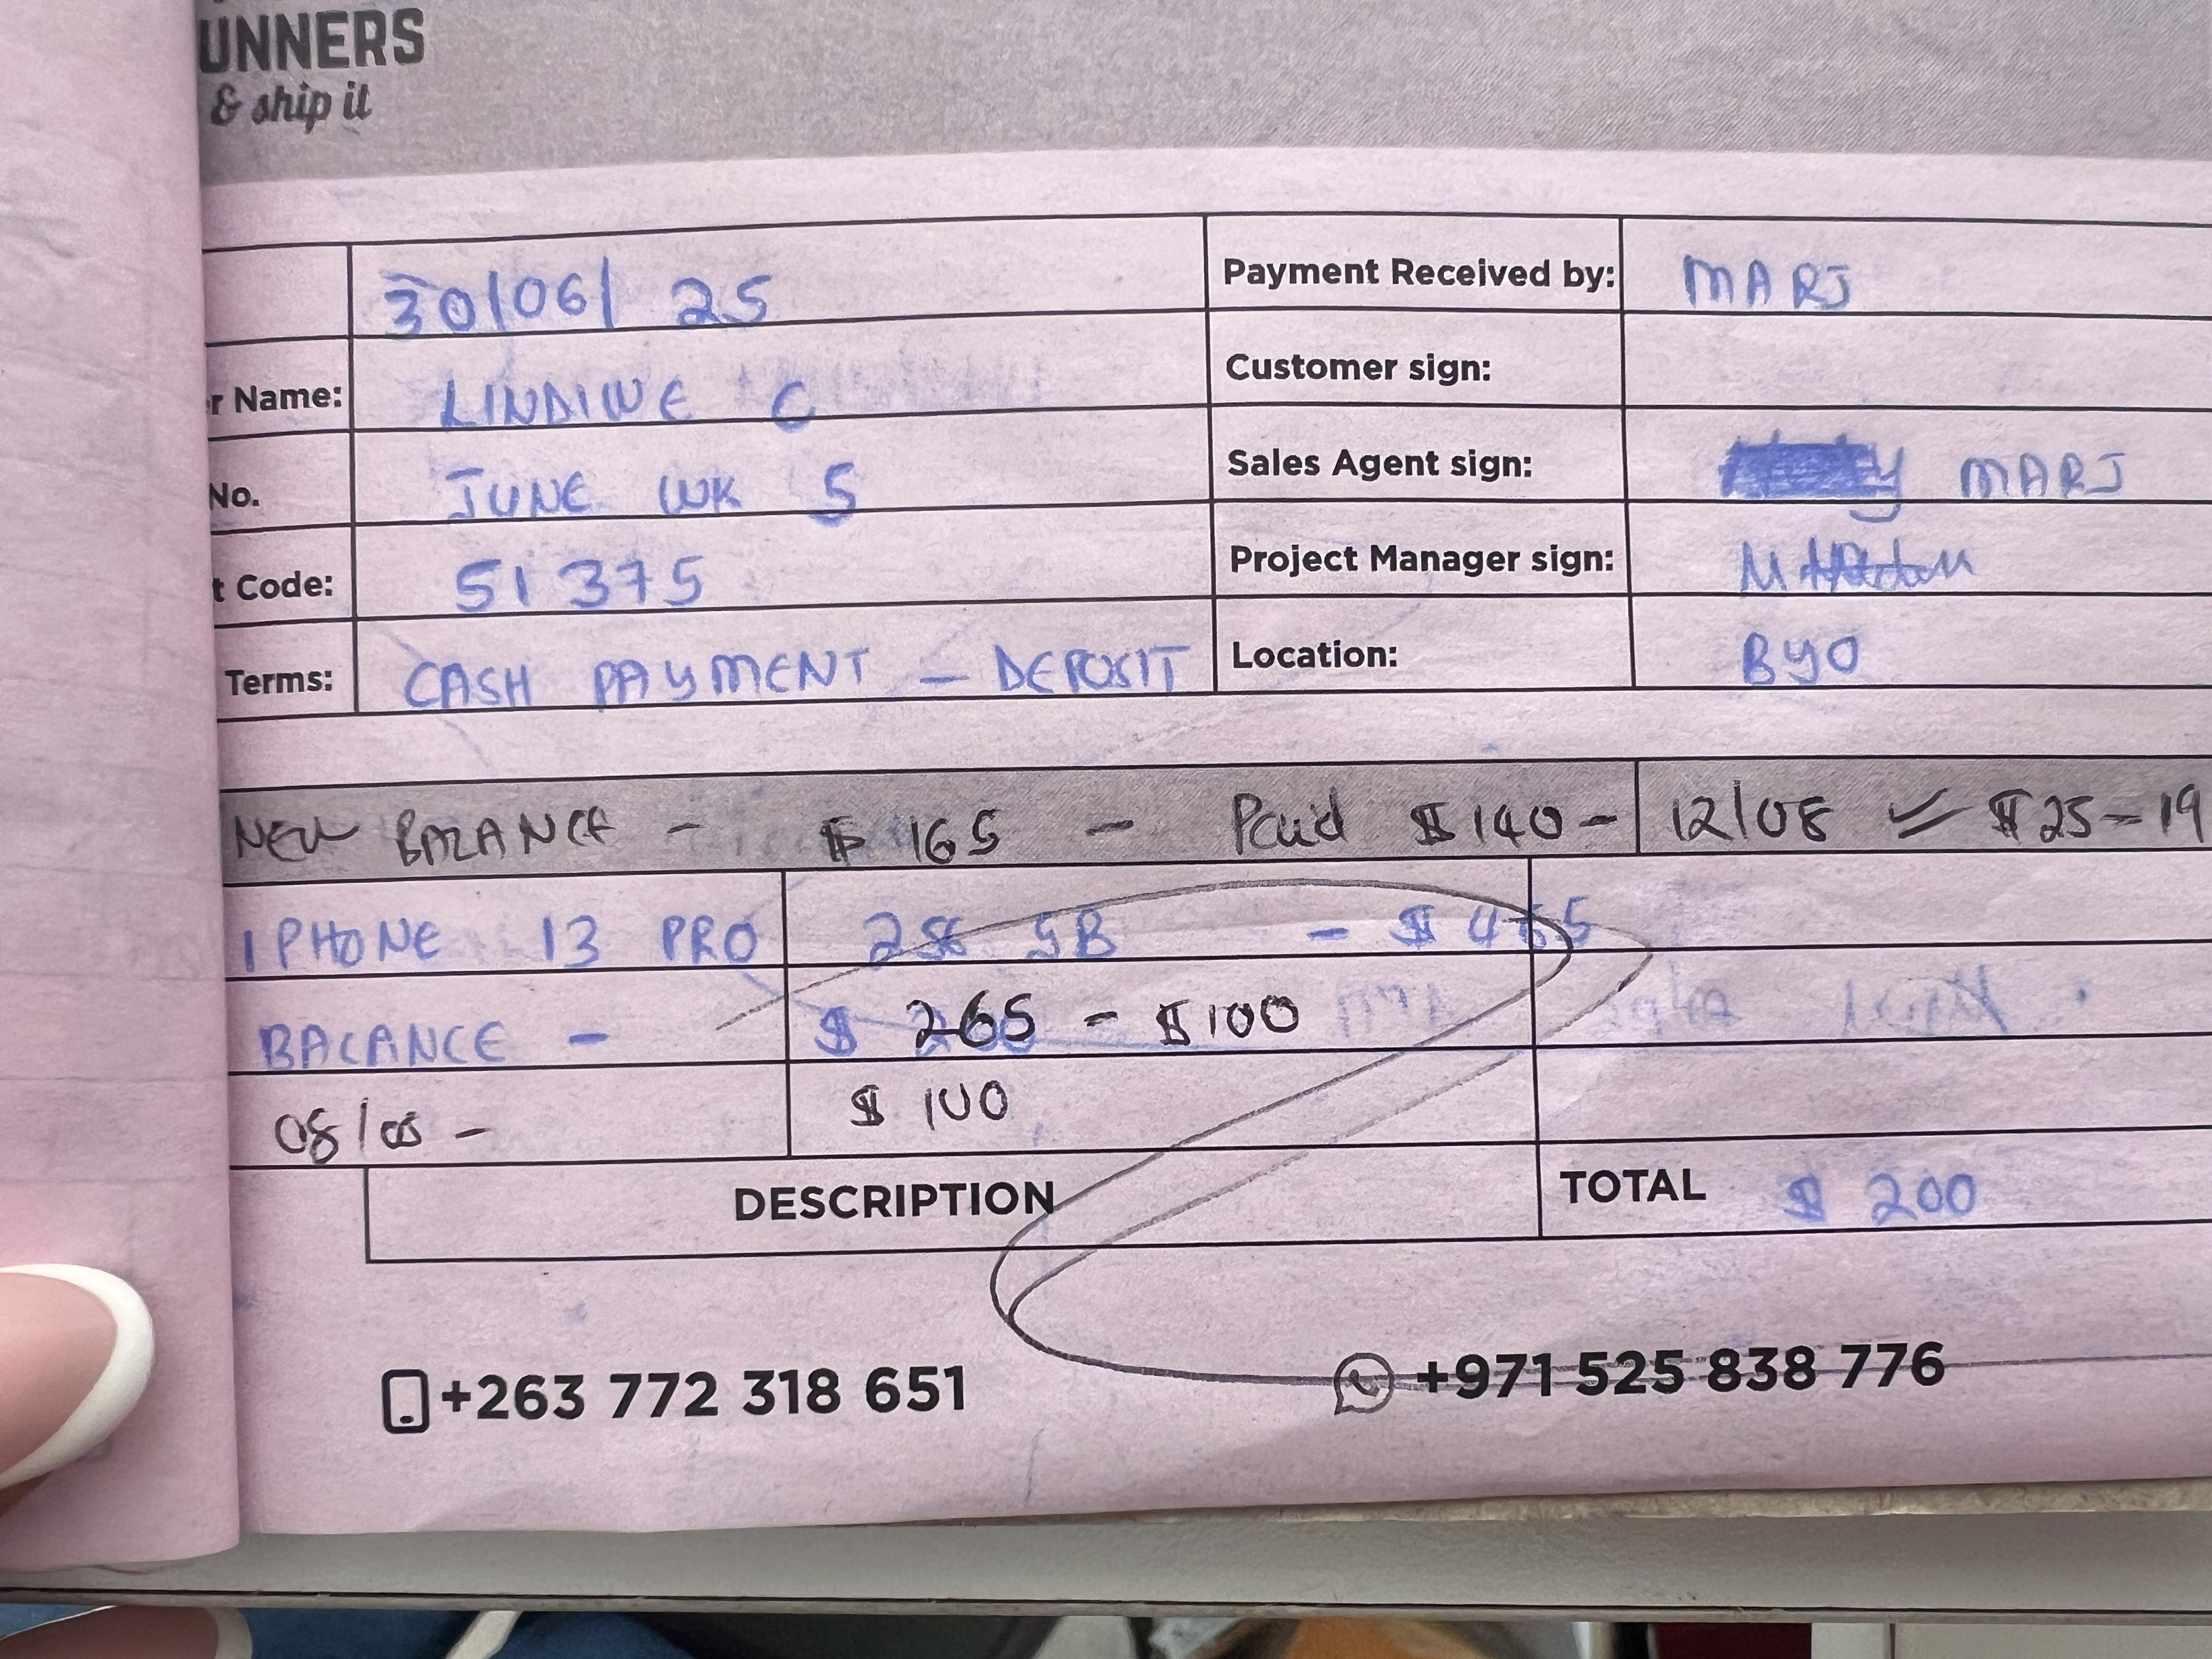 UNNERS
& ship it
30/06/ 25
Payment Received by: MARJ
r Name: LINDIWE C
Customer sign:
No. JUNE WK 5
Sales Agent sign: MARJ
t Code: 51375
Project Manager sign:
Terms: CASH PAYMENT - DEPOSIT
Location: BYO
NEW BALANCE - $ 165 - Paid $140 - 12/08 $25 - 19
IPHONE 13 PRO 256 GB - $465
BALANCE - $ 265 - $100
08/08 - $ 100
DESCRIPTION
TOTAL $ 200
+263 772 318 651
+971 525 838 776